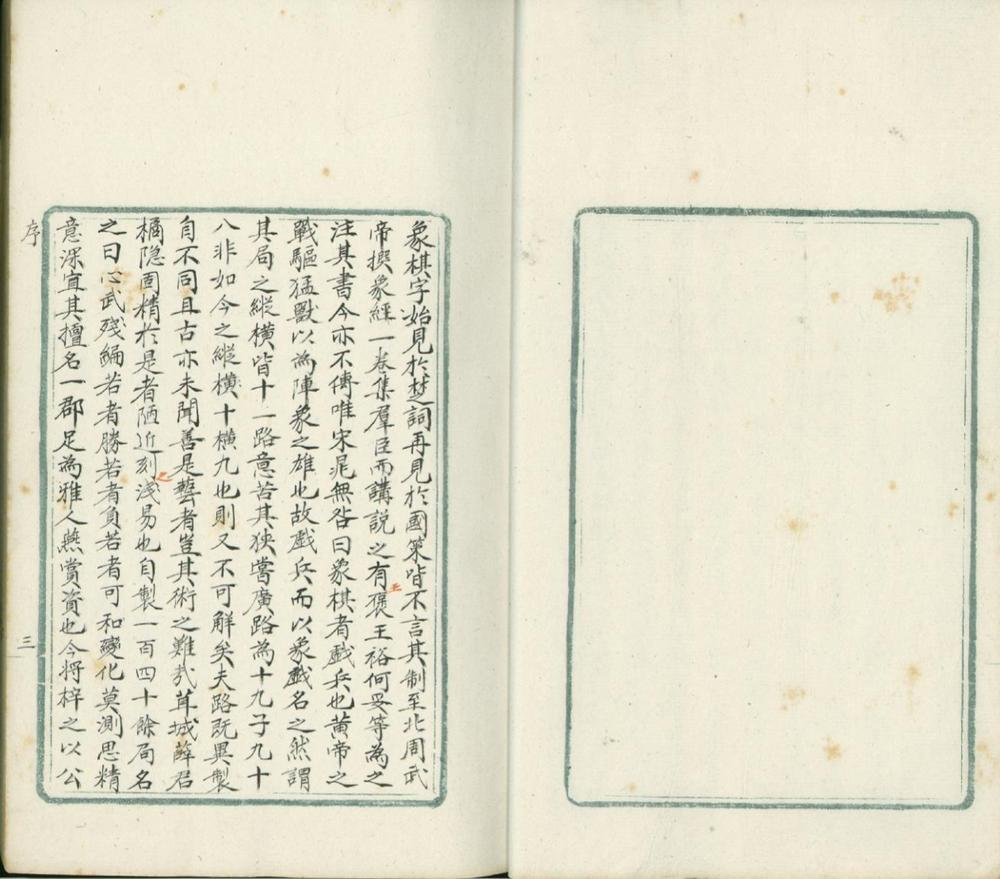 象棋字始見於楚詞再見於國策皆不言其制至北周武
帝撰象經一卷集羣臣而講說之有王褒王裕何妥等為之
注其書今亦不傳唯宋晁無咎曰象棋者戲兵也黃帝之
戰驅猛獸以為陣象之雄也故戲兵而以象戲名之然謂
其局之縱橫皆十一路意苦其狹嘗廣路為十九子九十
八非如今之縱橫十橫九也則又不可解矣夫路既異製
自不同且古亦未聞善是藝者豈其術之難氣茸城薛君
橘隐固精於是者陋近刻之淺易也自製一百四十餘局名
之曰心武殘編若者勝若者負若者可和變化莫測思精
意深宜其擅名一郡足為雅人燕賞資也今將梓之以公
序
三